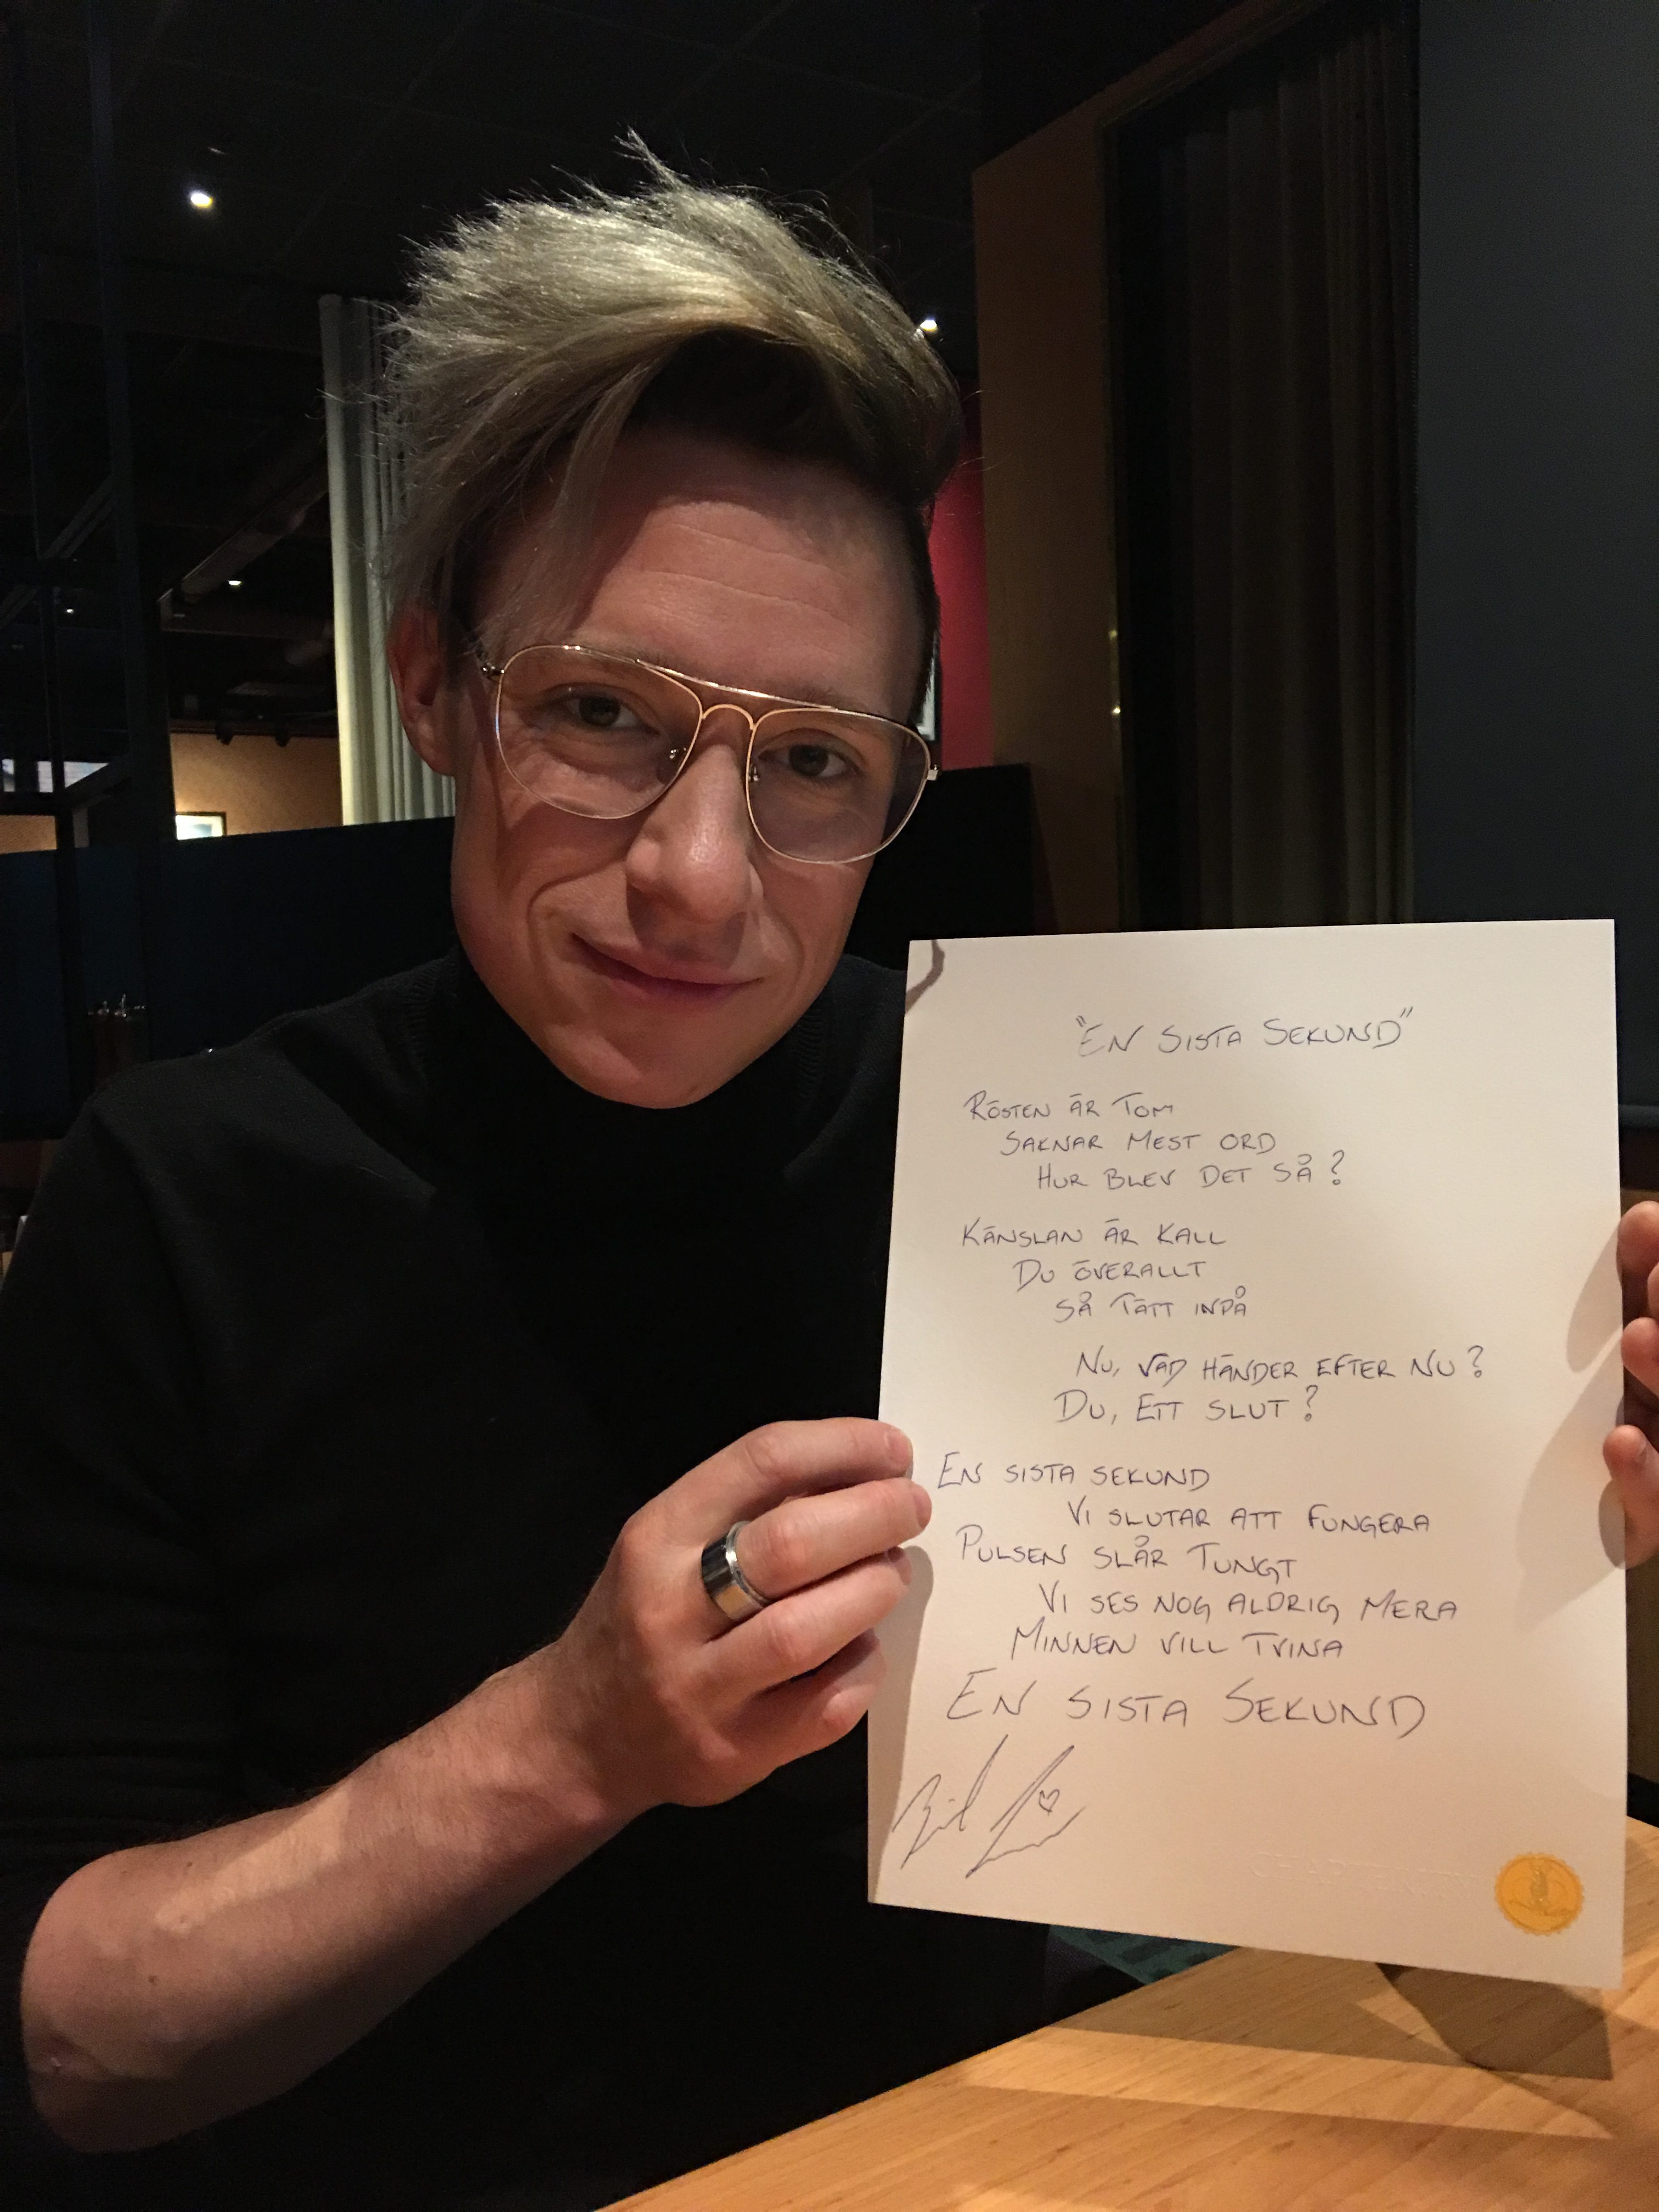 "EN SISTA SEKUND"
RÖSTEN ÄR TOM
SAKNAR MEST ORD
HUR BLEV DET SÅ?
KÄNSLAN ÄR KALL
DU ÖVERALLT
SÅ TÄTT INPÅ
NU, VAD HÄNDER EFTER NU?
DU, ETT SLUT?
EN SISTA SEKUND
VI SLUTAR ATT FUNGERA
PULSEN SLÅR TUNGT
VI SES NOG ALDRIG MERA
MINNEN VILL TVINA
EN SISTA SEKUND